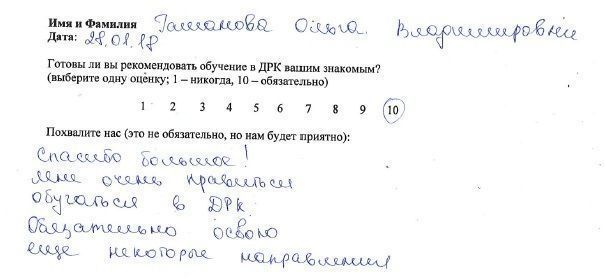 Имя и Фамилия Гашанова Ольга Владимировна
Дата: 28.01.18
Готовы ли вы рекомендовать обучение в ДРК вашим знакомым?
(выберите одну оценку; 1 – никогда, 10 – обязательно)
1 2 3 4 5 6 7 8 9 10
Похвалите нас (это не обязательно, но нам будет приятно):
Спасибо большое!
Мне очень нравиться
обучаться в ДРК.
Обязательно освою
еще некоторые направления